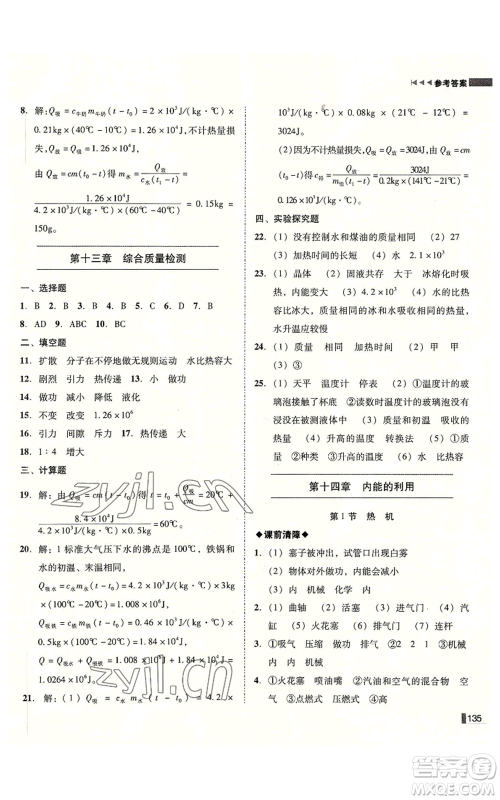 参考答案
8. 解：Q吸＝c牛奶m牛奶(t－t₀)＝2×10³J/(kg·℃)×
0.21kg×(40℃－10℃)＝1.26×10⁴J,不计热量损
失,Q放＝Q吸＝1.26×10⁴J,
由 Q放＝cm(t₀－t)得 m水＝Q放/c水(t₁－t)＝
1.26×10⁴J/4.2×10³J/(kg·℃)×(60℃－40℃)＝0.15kg＝
150g。
第十三章 综合质量检测
一、选择题
1. B 2. B 3. A 4. D 5. D 6. D 7. B
8. AD 9. ABC 10. BC
二、填空题
11. 扩散 分子在不停地做无规则运动 水比热容大
12. 剧烈 引力 热传递 13. 小 做功
14. 做功 减小 热传递
15. 不变 改变 1.26×10⁶
16. 引力 间隙 斥力 17. 热传递
18. 1∶4 增大
三、计算题
19. 解：由 Q吸＝cm(t－t₀)得 t＝Q吸/cm＋t₀＝20℃＋
8.4×10⁴J/4.2×10³J/(kg·℃)×0.5kg＝60℃。
20. 解：1标准大气压下水的沸点是100℃,铁锅和
水的末温是100℃,
Q吸水＝c水m水(t－t₀)＝4.2×10³J/(kg·℃)×
3kg×(100℃－20℃)＝1.008×10⁶J,
Q吸铁＝c铁m铁(t－t₀)＝0.46×10³J/(kg·℃)×
0.5kg×(100℃－20℃)＝1.84×10⁴J,
Q吸＝Q吸水＋Q吸铁＝1.008×10⁶J＋1.84×10⁴J＝
1.0264×10⁶J。
21. 解：(1)Q吸＝c水m水(t－t₀水)＝4.2×
10³J/(kg·℃)×0.08kg×(21℃－12℃)＝
3024J。
(2)不计热量损失,Q放＝Q吸＝3024J,由 Q放＝cm
(t₀－t)得 c合＝Q放/m合(t₀－t)＝3024J/0.2kg×(141℃－21℃)＝
0.126×10³J/(kg·℃)。
四、实验探究题
22. (1)没有控制水和煤油的质量相同 (2)27
(3)加热时间的长短 (4)水 2.1×10³
23. (1)晶体 (2)固液共存 (3)大 冰熔化时吸
热,内能变大 (4)4.2×10⁴ (5)水的比热容比
冰大,质量相同的冰和水吸收相同的热量后,
水升温应较慢
24. (1)相同 (2)甲 (3)B 甲 (4)①②
(3)③
25. (1)天平 温度计 停表 (2)①温度计的玻璃
泡接触了杯底 ②读数时温度计的玻璃泡没有
浸没在被测液体中 (3)①质量和初温 吸热
本领 (4)升高的温度 转换法 (5)①质量
初温 ②升高的温度 (6)水 比热容
第十四章 内能的利用
第1节 热 机
◆课前清障◆
1. (1)塞子被冲出,试管口出现白雾
(2)物体对外做功,内能减小
(3)内 机械 化学 内
2. (1)曲轴 (2)活塞 (3)进气门 (4)气缸
(5)火花塞 (6)排气门 (7)连杆
3. (1)吸气 压缩 做功 排气 (2)2 2 1 (3)做功
机械 内 内 机械
4. (1)火花塞 喷油嘴 (2)汽油和空气的混合物 空
气 (3)点燃式 压燃式 (4)汽油机 柴油机
135
zyjl.cn
作业精灵